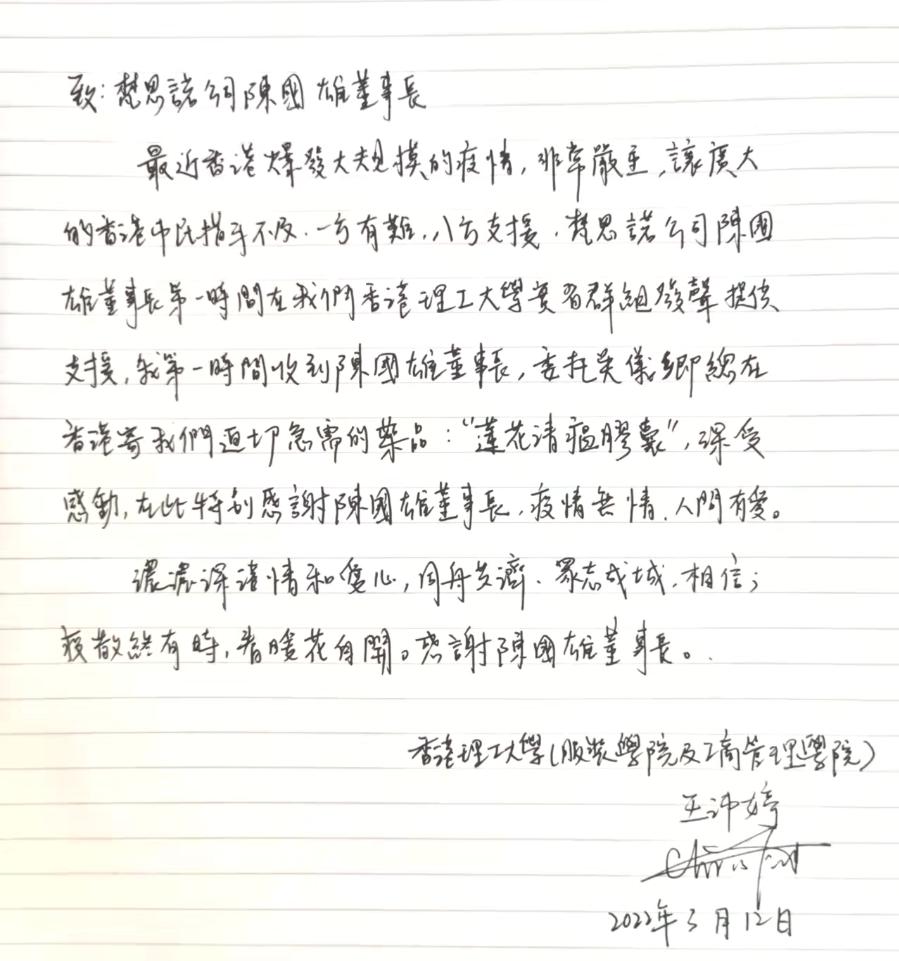 致：梵思諾公司陳國雄董事長
最近香港爆發大規模的疫情，非常嚴重，讓廣大
的香港市民措手不及．一方有難，八方支援．梵思諾公司陳國
雄董事長第一時間在我們香港理工大學莫哥群組發聲提供
支援，我第一時間收到陳國雄董事長，委托吳儀卿總在
香港寄我們迫切急需的藥品：“蓮花清瘟膠囊”，深受
感動，在此特别感謝陳國雄董事長．疫情無情．人間有愛。
濃濃深誼情和愛心，同舟共濟．眾志成城．相信；
疫散終有時，春暖花自開。感謝陳國雄董事長。．
香港理工大學（服裝學院及工商管理學院）
王沛婷
2022年3月12日